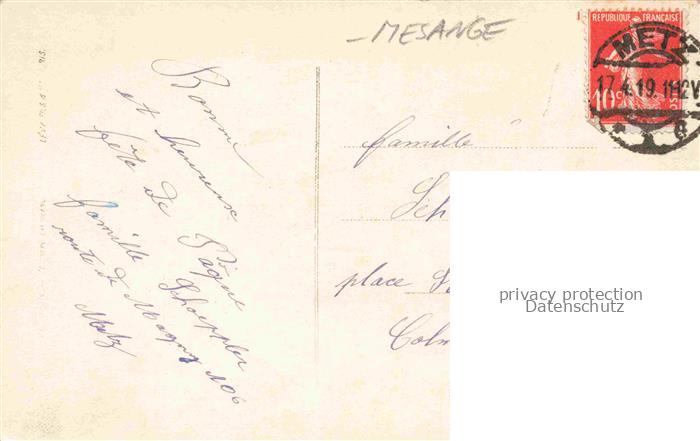 - MESANGE
REPUBLIQUE FRANÇAISE
METZ
17.4.19.11-12V
10
Bonne
et heureuse
fête de Pâque
famille Schoeppler
route de Magny 106
Metz
famille
Sch
place
Colm
privacy protection
Datenschutz